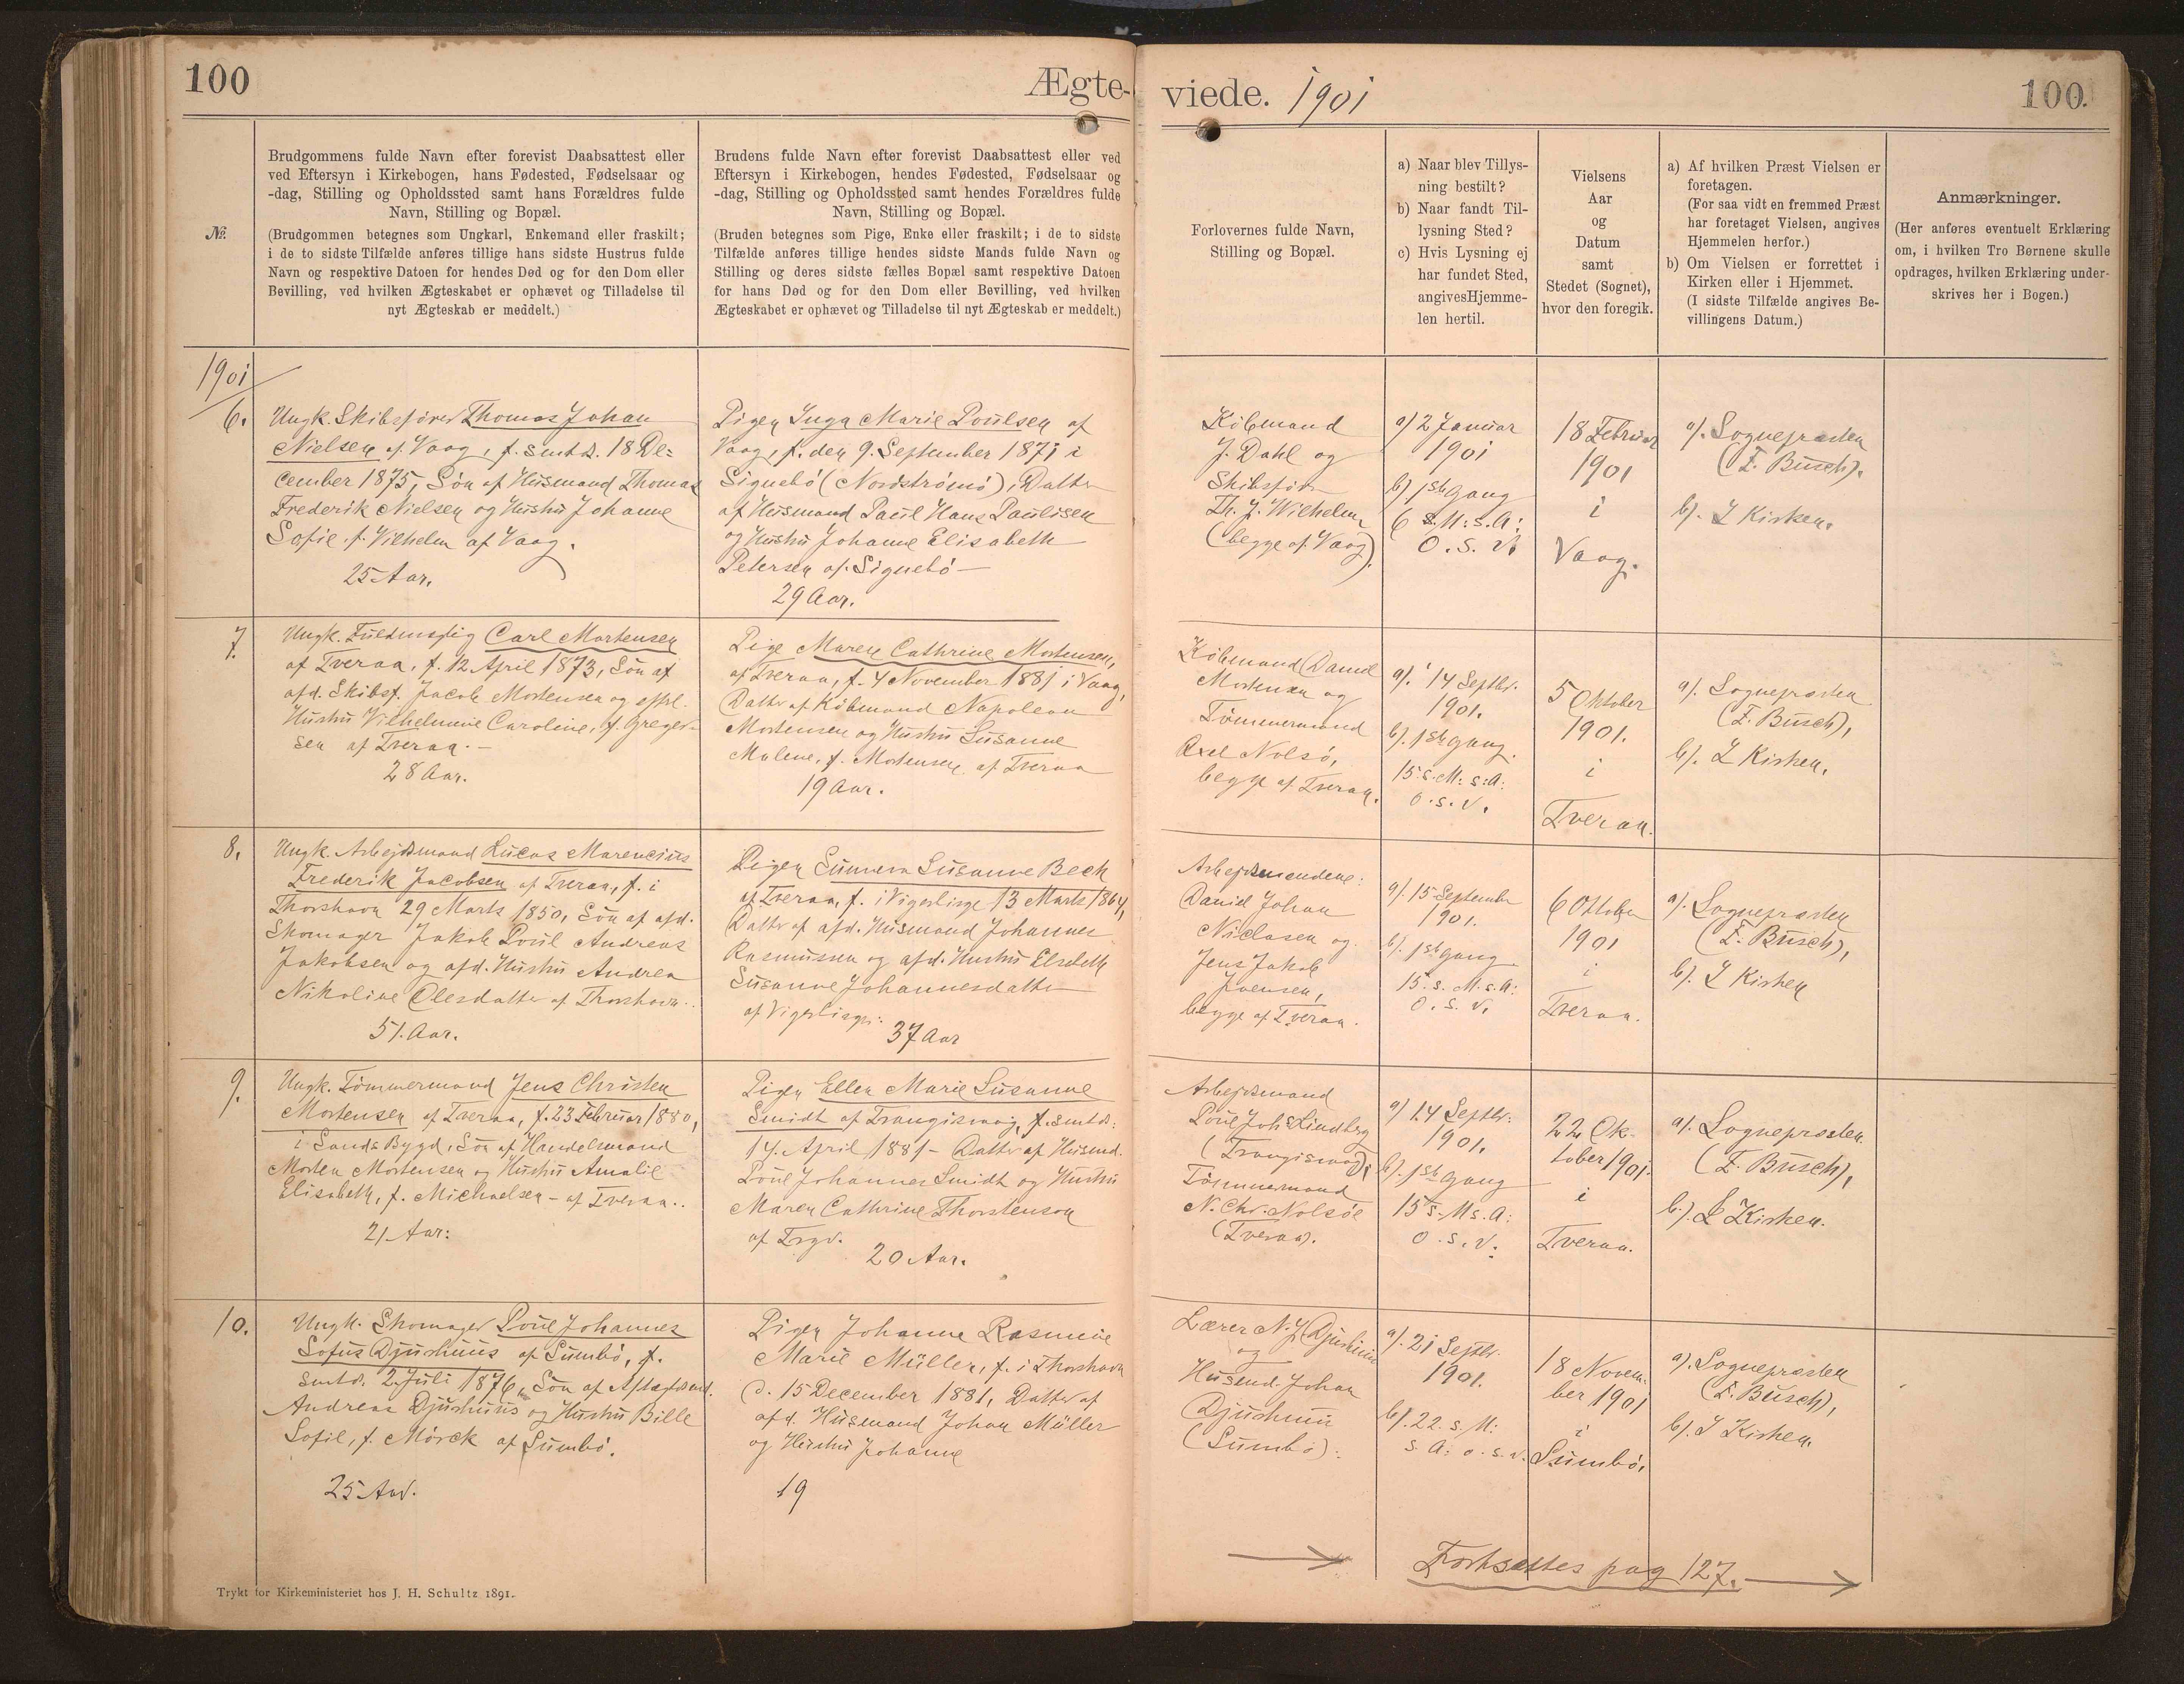 100
Ægte-
viede. 1901
100.
No.
Brudgommens fulde Navn efter forevist Daabsattest eller
ved Eftersyn i Kirkebogen, hans Fødested, Fødselsaar og
-dag, Stilling og Opholdssted samt hans Forældres fulde
Navn, Stilling og Bopæl.
(Brudgommen betegnes som Ungkarl, Enkemand eller fraskilt;
i de to sidste Tilfælde anføres tillige hans sidste Hustrus fulde
Navn og respektive Datoen for hendes Død og for den Dom eller
Bevilling, ved hvilken Ægteskabet er ophævet og Tilladelse til
nyt Ægteskab er meddelt.)
Brudens fulde Navn efter forevist Daabsattest eller ved
Eftersyn i Kirkebogen, hendes Fødested, Fødselsaar og
-dag, Stilling og Opholdssted samt hendes Forældres fulde
Navn, Stilling og Bopæl.
(Bruden betegnes som Pige, Enke eller fraskilt; i de to sidste
Tilfælde anføres tillige hendes sidste Mands fulde Navn og
Stilling og deres sidste fælles Bopæl samt respektive Datoen
for hans Død og for den Dom eller Bevilling, ved hvilken
Ægteskabet er ophævet og Tilladelse til nyt Ægteskab er meddelt.)
Forlovernes fulde Navn,
Stilling og Bopæl.
a) Naar blev Tillys-
ning bestilt?
b) Naar fandt Til-
lysning Sted?
c) Hvis Lysning ej
har fundet Sted,
angives Hjemme-
len hertil.
Vielsens
Aar
og
Datum
samt
Stedet (Sognet),
hvor den foregik.
a) Af hvilken Præst Vielsen er
foretagen.
(For saa vidt en fremmed Præst
har foretaget Vielsen, angives
Hjemmelen herfor.)
b) Om Vielsen er forrettet i
Kirken eller i Hjemmet.
(I sidste Tilfælde angives Be-
villingens Datum.)
Anmærkninger.
(Her anføres eventuelt Erklæring
om, i hvilken Tro Børnene skulle
opdrages, hvilken Erklæring under-
skrives her i Bogen.)
1901
6.
Ungk. Skibsfører Thomas Johan
Nielsen af Vaag, f. smts. 18 De=
cember 1875, Søn af Husmand Thomas
Frederik Nielsen og Hustru Johanne
Sofie f. Vilhelm af Vaag.
25 Aar.
Pigen Inga Marie Poulsen af
Vaag, f. den 9. September 1871 i
Signebö (Nordströmö), Datter
af Husmand Paul Hans Paulisen
og Hustru Johanne Elisabeth
Petersen af Signebö —
29 Aar.
Købmand
J. Dahl og
Skibsfører
Th. J. Wilhelm,
(begge af Vaag).
a) 2 Januar
1901
b) 1ste Gang
6 S. M: s. A:
o. s. v.
18 Februar
1901
i
Vaag.
a). Sognepræsten
(F. Busch).
b). I Kirken.
7.
Ungk. Carl Mortensen
af Tveraa, f. 12 April 1873, Søn af
afd. Skibsf. Jacob Mortensen og
Hustru Vilhelmine Caroline, f. Greger-
sen af Tveraa. —
28 Aar.
Pige Maren Cathrine Mortensen,
af Tveraa, f. 4 November 1881 i Vaag,
Datter af Købmand Napoleon
Mortensen og Hustru Susanne
Malene, f. Mortensen af Tveraa
19 Aar.
Købmand Daniel
Mortensen og
Tömmermand
Axel Nolsö,
begge af Tveraa.
a). 14 Septbr.
1901.
b). 1ste Gang.
15. s. M: s: A:
o. s. v.
5 Oktober
1901.
i
Tveraa.
a). Sognepræsten
(F. Busch),
b). I Kirken.
8.
Ungk. Arbejdsmand Lucas Marencius
Frederik Jacobsen af Tveraa, f. i
Thorshavn 29 Marts 1850, Søn af afd.
Skomager Jakob Poul Andreas
Jakobsen og afd. Hustru Andrea
Nikoline Olesdatter af Thorshavn.
51. Aar.
Pigen Sunneva Susanne Beck
af Tveraa, f. i Vigerlisge 13 Marts 1864,
Datter af afd. Husmand Johannes
Rasmussen og afd. Hustru Elsebeth
Susanne Johannesdatter
af
37 Aar
Arbejdsmændene:
Daniel Johan
Niclasen og
Jens Jakob
Joensen,
begge af Tveraa.
a). 15 September
1901.
b). 1ste Gang
15. s. M. s. A:
o. s. v.
6 Oktober
1901
i
Tveraa.
a). Sognepræsten
(F. Busch),
b). I Kirken
9.
Ungk. Tömmermand Jens Christen
Mortensen af Tveraa, f. 23 Februar 1880,
i Sands Bygd, Søn af Handelsmand
Morten Mortensen og Hustru Amalie
Elisabeth, f. Michaelsen — af Tveraa..
21 Aar:
Pigen Ellen Marie Susanne
Smidt af Trangisvaag, f. smts.
14. April 1881 — Datter af Husmd.
Poul Johannes Smidt og Hustru
Maren Cathrine Thorstenson
af Trgv.
20 Aar.
Arbejdsmand
Poul Johs Lindberg
(Trangisvaag),
Tömmermand
N. Chr. Nolsöe
(Tveraa).
a) 14 Septbr:
1901.
b). 1ste Gang
15 s. M s. A:
o. s. v.
22 Ok-
tober 1901
i
Tveraa.
a). Sognepræsten.
(F. Busch),
b). I Kirken.
10.
Ungk. Skomager Poul Johannes
Sofus Djurhuus af Sumbö, f.
smts. 2 Juli 1876, Søn af Aftægtsmd.
Andreas Djurhuus og Hustru Bille
Sofie, f. Mörck af Sumbö.
25 Aar.
Pigen Johanne Rasmine
Marie Müller, f. i Thorshavn
d. 15 December 1881, Datter af
afd. Husmand Johan Müller
og Hustru Johanne
19
Lærer N. J. Djurhuus
og
Husmd. Johan
Djurhuus
(Sumbö).
a). 21 Septbr.
1901.
b). 22. s. M:
s. A: o. s. v.
18 Novem-
ber 1901
i
Sumbö.
a). Sognepræsten
(F. Busch),
b). I Kirken.
Fortsættes pag 127.
Trykt for Kirkeministeriet hos J. H. Schultz 1891.